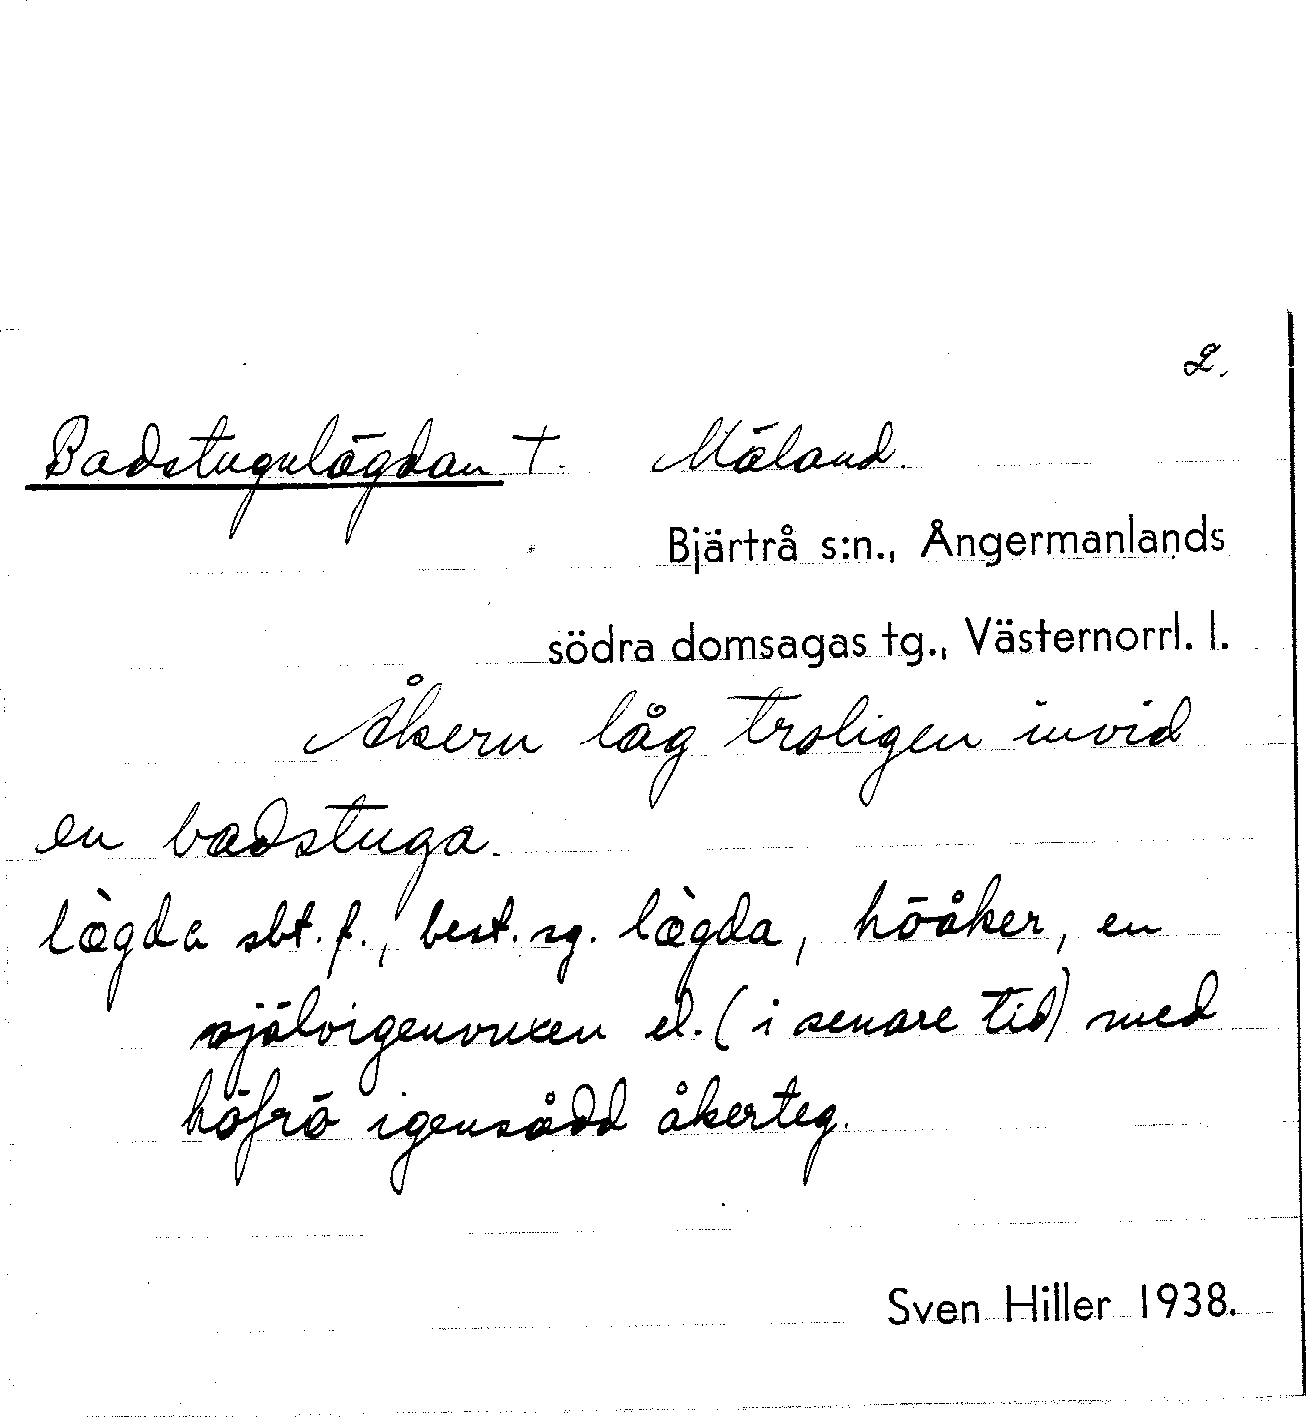 2.
Badstugulägdan †. Mäland.
Bjärtrå s:n., Ångermanlands
södra domsagas tg., Västernorrl. l.
Åkern låg troligen invid
en badstuga.
læ̀gda sbt. f., best. sg. læ̀gda, höåker, en
självigenvuxen el. (i senare tid) med
höfrö igensådd åkerteg.
Sven Hiller 1938.